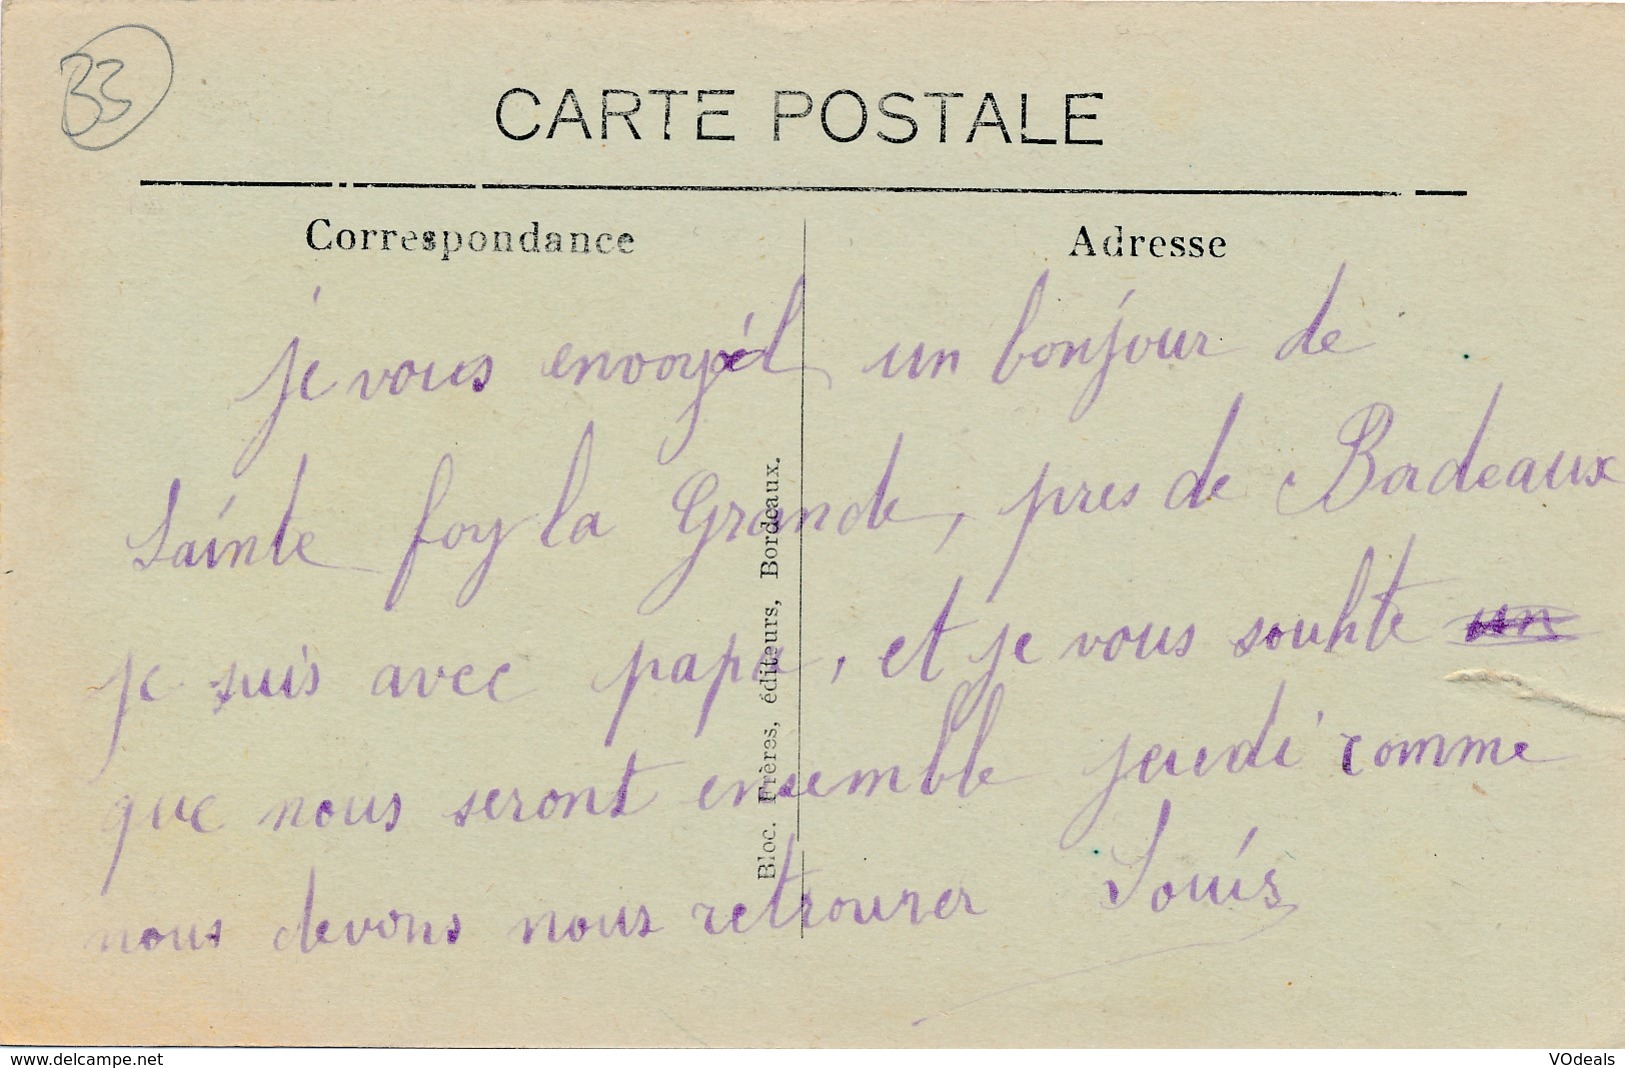 B3
CARTE POSTALE
Correspondance
Adresse
je vous envoyél un bonjour de
Sainte foy la Grande, pres de Bordeaux
je suis avec papa, et je vous souhte un
que nous seront ensemble jeudi comme
nous devons nous retrouver Louis
Bloc. Frères, éditeurs, Bordeaux.
www.delcampe.net
VOdeals